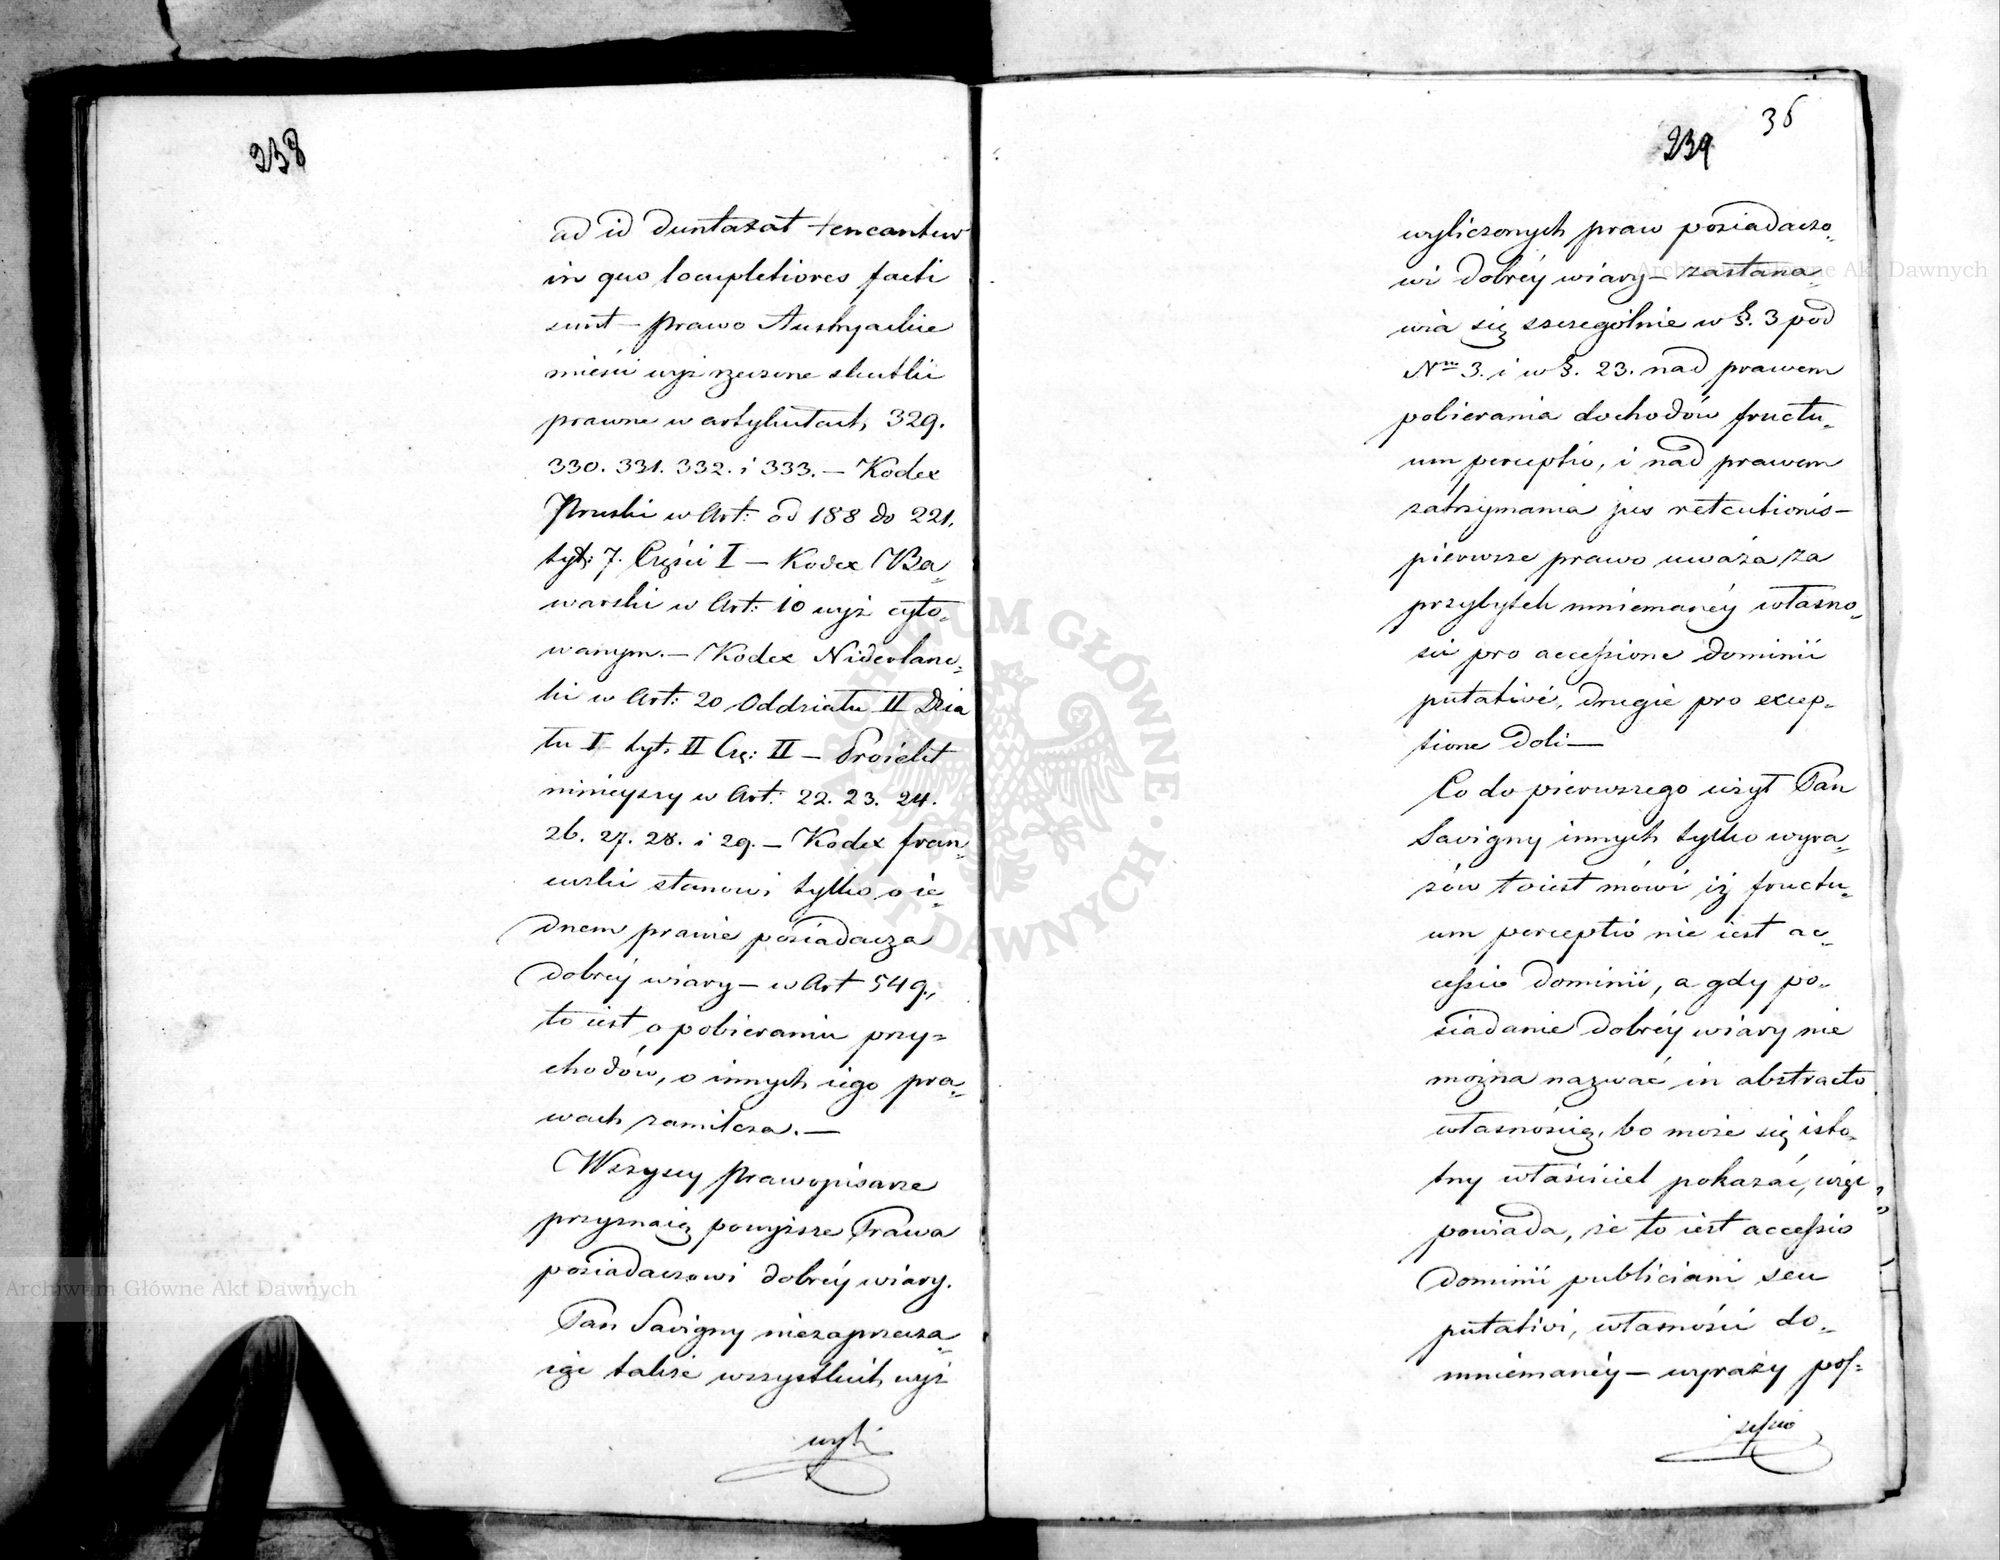 238
ad id duntaxat teneantur
in quo locupletiores facti
sunt — prawo Austryackie
mieści wyż rzeczone skutki
prawne w artykułach 329.
330. 331. 332. i 333. — Kodex
Pruski w Art: od 188 do 221.
tyt: 7. Części I — Kodex Ba„
warski w Art: 10 wyż cyto„
wanym. — Kodex Niderlanc„
ki w Art: 20 Oddziału II Dzia
łu I tyt. II Czę: II — Proiekt
ninieyszy w Art. 22. 23. 24.
26. 27. 28. i 29. — Kodex fran„
cuzki stanowi tylko o ie„
dnem prawie posiadacza
dobrey wiary — w Art 549.,
to iest o pobieraniu przy„
chodów, o innych iego pra„
wach zamilcza. —
Wszyscy prawopisarze
przyznaią powyższe Prawa
posiadaczowi dobréy wiary.
Pan Savigny niezaprzecza„
iąc także wszystkich wyż
wyli
36
239
wyliczonych praw posiadaczo„
wi dobréy wiary — zastana„
wia się szczególnie w §. 3 pod
Nrm 3. i w §. 23. nad prawem
pobierania dochodów fructu„
um perceptio, i nad prawem
zatrzymania jus retentionis —
pierwsze prawo uważa za
przybytek mniemanéy własno„
ści pro accessione dominii
putativi, drugie pro excep„
tione doli —
Co do pierwszego użył Pan
Savigny innych tylko wyra„
zów toiest mówi iż fructu„
um perceptio nie iest ac„
cessio dominii, a gdy po„
siadanie dobréy wiary nie
można nazwać in abstracto
własnością, bo może się isto„
tny właściciel pokazać, więc
powiada, że to iest accessio
dominii publiciani seu
putativi, własności do„
mniemanéy — wyrazy pos„
sessio
Archiwum Główne Akt Dawnych
Archiwum Główne Akt Dawnych
ARCHIWUM GŁÓWNE AKT DAWNYCH